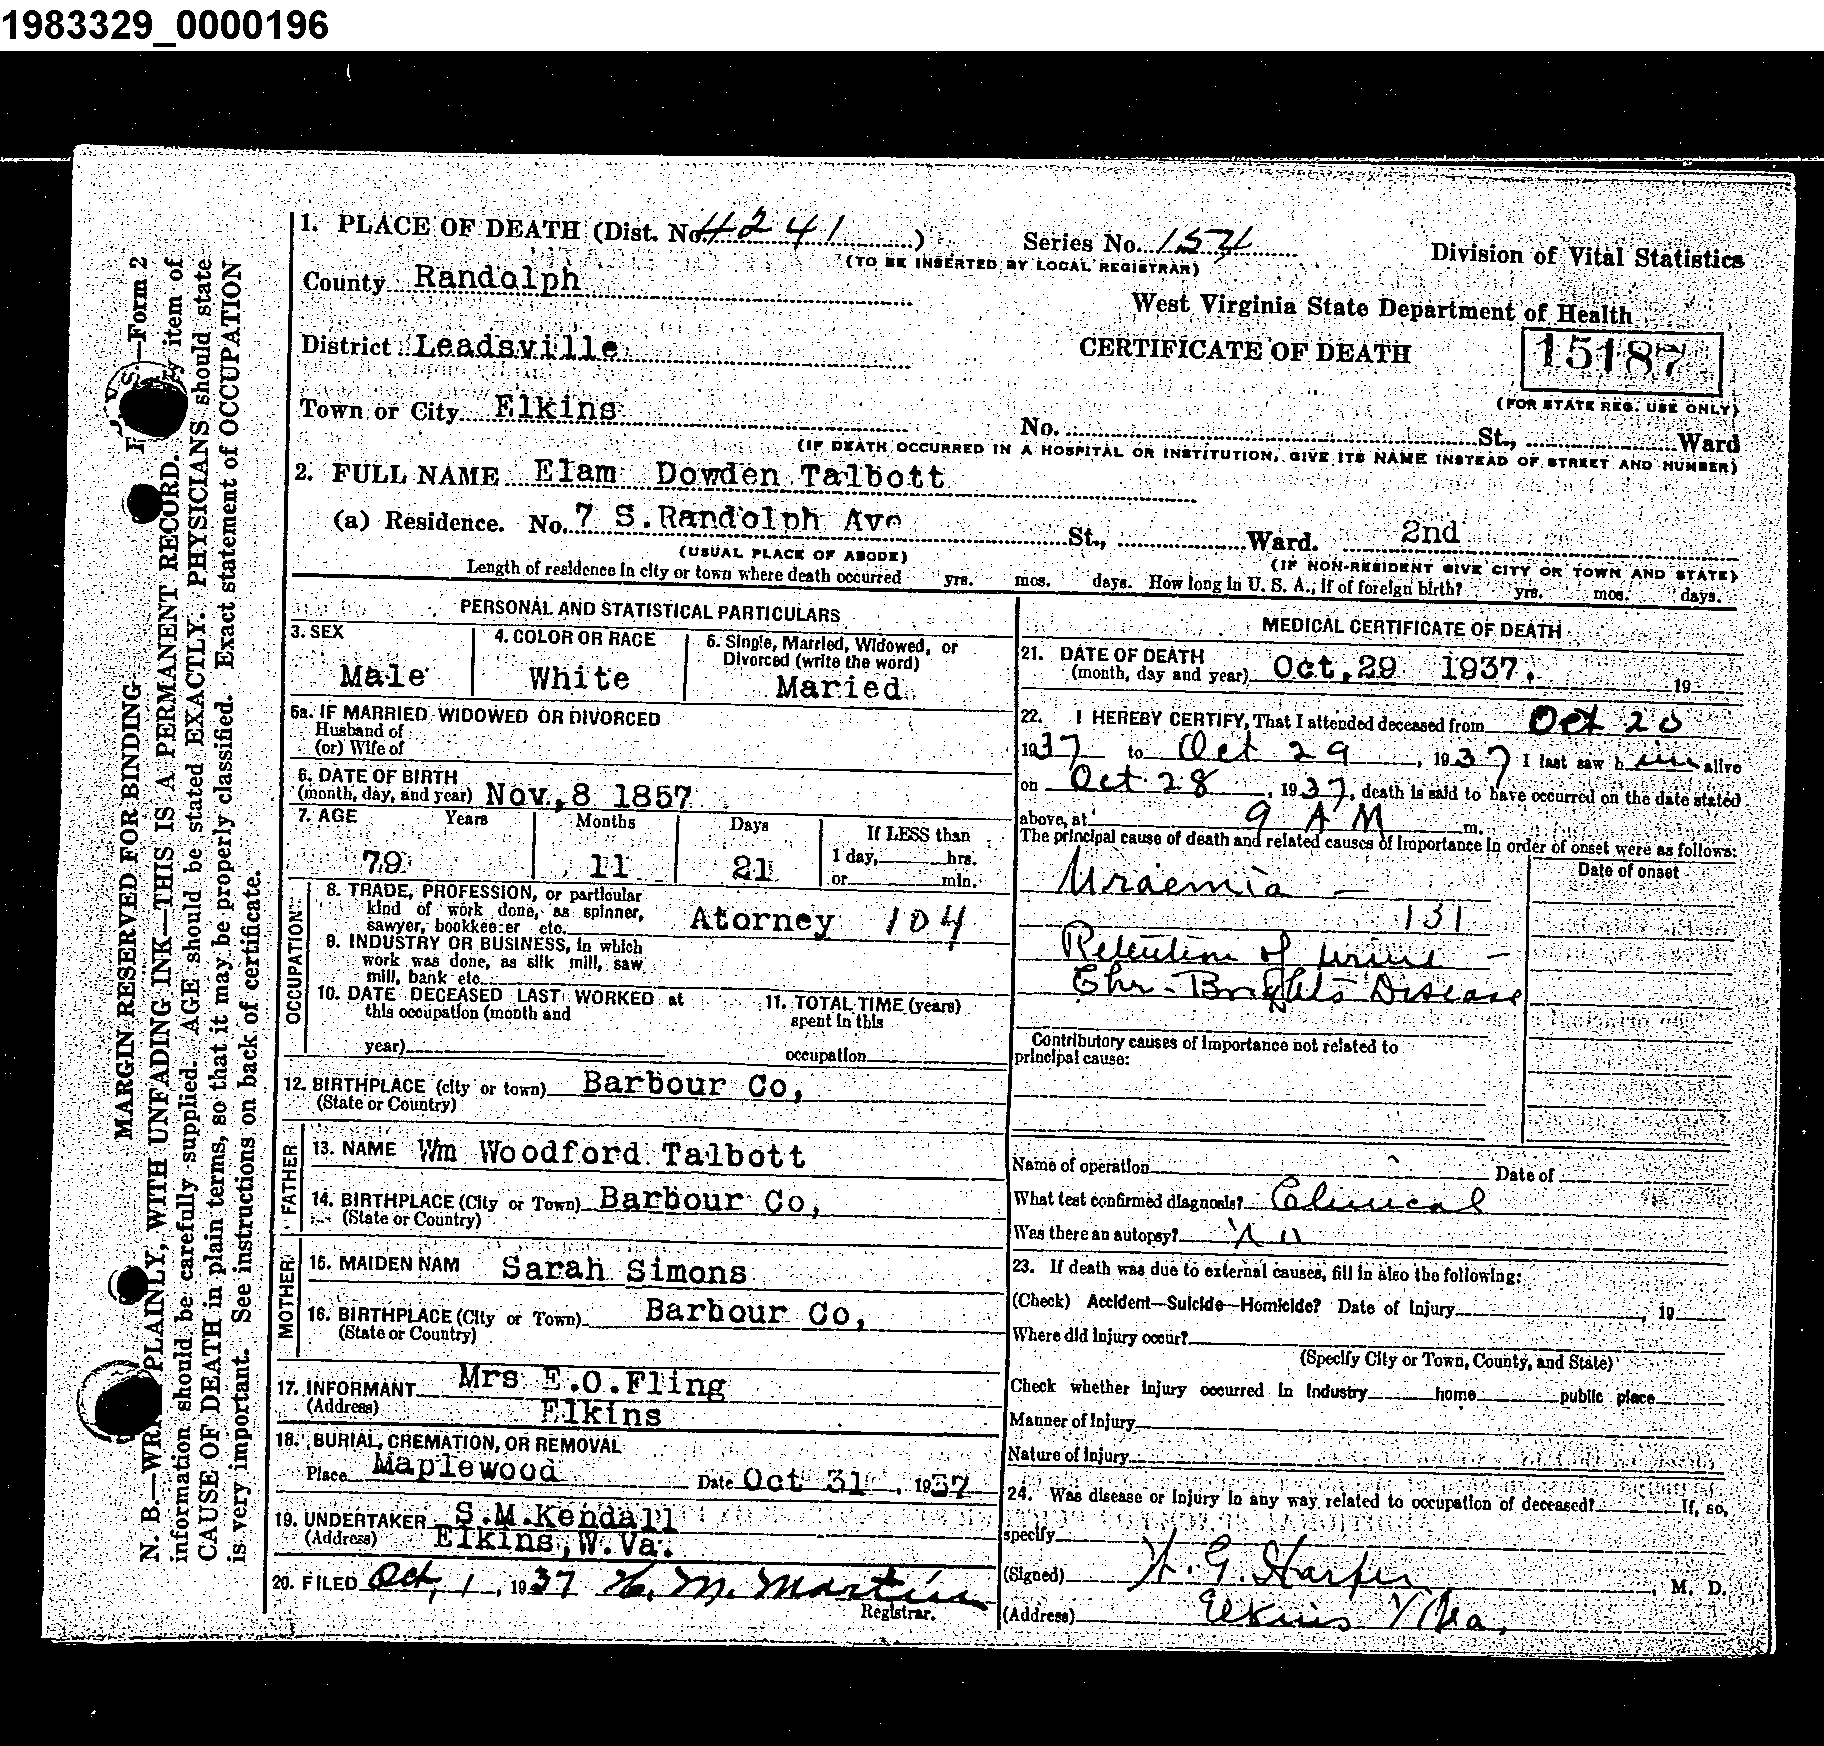 1983329_0000196
1. PLACE OF DEATH (Dist. No. 4241)
Series No. 1571
(TO BE INSERTED BY LOCAL REGISTRAR)
Division of Vital Statistics
County Randolph
West Virginia State Department of Health
District Leadsville
CERTIFICATE OF DEATH
15187
(FOR STATE REG. USE ONLY)
Town or City Elkins
No. St., Ward
(IF DEATH OCCURRED IN A HOSPITAL OR INSTITUTION, GIVE ITS NAME INSTEAD OF STREET AND NUMBER)
2. FULL NAME Elam Dowden Talbott
(a) Residence. No. 7 S.Randolph Ave St., Ward. 2nd
(USUAL PLACE OF ABODE)
(IF NON-RESIDENT GIVE CITY OR TOWN AND STATE)
Length of residence in city or town where death occurred yrs. mos. days. How long in U. S. A., if of foreign birth? yrs. mos. days.
PERSONAL AND STATISTICAL PARTICULARS
3. SEX
Male
4. COLOR OR RACE
White
5. Single, Married, Widowed, or
Divorced (write the word)
Maried
5a. IF MARRIED WIDOWED OR DIVORCED
Husband of
(or) Wife of
6. DATE OF BIRTH
(month, day, and year) Nov., 8 1857
7. AGE Years Months Days If LESS than
79 11 21 1 day, hrs.
or min.
OCCUPATION
8. TRADE, PROFESSION, or particular
kind of work done, as spinner,
sawyer, bookkeeper etc. Atorney 104
9. INDUSTRY OR BUSINESS, in which
work was done, as silk mill, saw
mill, bank etc.
10. DATE DECEASED LAST WORKED at
this occupation (month and
year)
11. TOTAL TIME (years)
spent in this
occupation
12. BIRTHPLACE (city or town) Barbour Co,
(State or Country)
FATHER
13. NAME Wm Woodford Talbott
14. BIRTHPLACE (City or Town) Barbour Co,
(State or Country)
MOTHER
15. MAIDEN NAM Sarah Simons
16. BIRTHPLACE (City or Town) Barbour Co,
(State or Country)
17. INFORMANT Mrs E.O.Fling
(Address) Elkins
18. BURIAL, CREMATION, OR REMOVAL
Place Maplewood Date Oct 31, 1937
19. UNDERTAKER S.M.Kendall
(Address) Elkins,W.Va.
20. FILED Oct, 1, 1937 H. M. Martin
Registrar.
MEDICAL CERTIFICATE OF DEATH
21. DATE OF DEATH
(month, day and year) Oct,29 1937, 19
22. I HEREBY CERTIFY, That I attended deceased from Oct 20
1937 to Oct 29, 1937 I last saw him alive
on Oct 28, 1937, death is said to have occurred on the date stated
above, at 9 AM m.
The principal cause of death and related causes of importance in order of onset were as follows:
Date of onset
Uraemia —
131
Retention of urine —
Chr- Brights Disease
Contributory causes of importance not related to
principal cause:
Name of operation Date of
What test confirmed diagnosis? Clinical
Was there an autopsy? No
23. If death was due to external causes, fill in also the following:
(Check) Accident—Suicide—Homicide? Date of injury , 19
Where did injury occur?
(Specify City or Town, County, and State)
Check whether injury occurred in industry home public place
Manner of injury
Nature of injury
24. Was disease or injury in any way related to occupation of deceased? If, so,
specify
(Signed) W. G. Harper, M. D.
(Address) Elkins W Va.
MARGIN RESERVED FOR BINDING
Form 2
N. B.—WRITE PLAINLY, WITH UNFADING INK—THIS IS A PERMANENT RECORD. Every item of
information should be carefully supplied. AGE should be stated EXACTLY. PHYSICIANS should state
CAUSE OF DEATH in plain terms, so that it may be properly classified. Exact statement of OCCUPATION
is very important. See instructions on back of certificate.